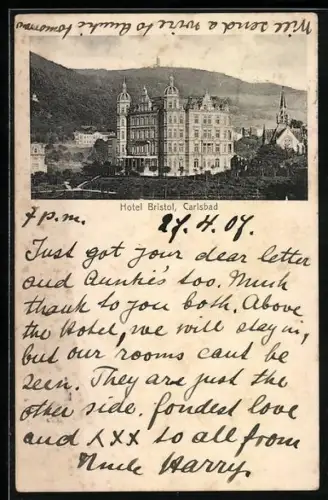 Will send a wire to Auntie tomorrow
Hotel Bristol, Carlsbad
7 p.m. 27.4.07.
Just got your dear letter
and Auntie's too. Much
thank to you both. Above
the Hotel, we will stay in,
but our rooms cant be
seen. They are just the
other side. fondest love
and XXX to all from
Uncle Harry.